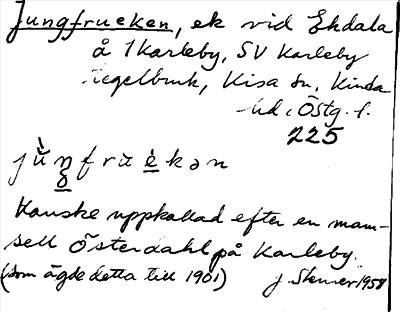 Jungfrueken, ek vid Ekdala
å 1 Karleby, SV Karleby
tegelbruk, Kisa sn, Kinda
hd, Östg. l.
225
jùŋfruèkən
Kanske uppkallad efter en mam-
sell Österdahl på Karleby.
(som ägde detta till 1901) J. Stenér 1958